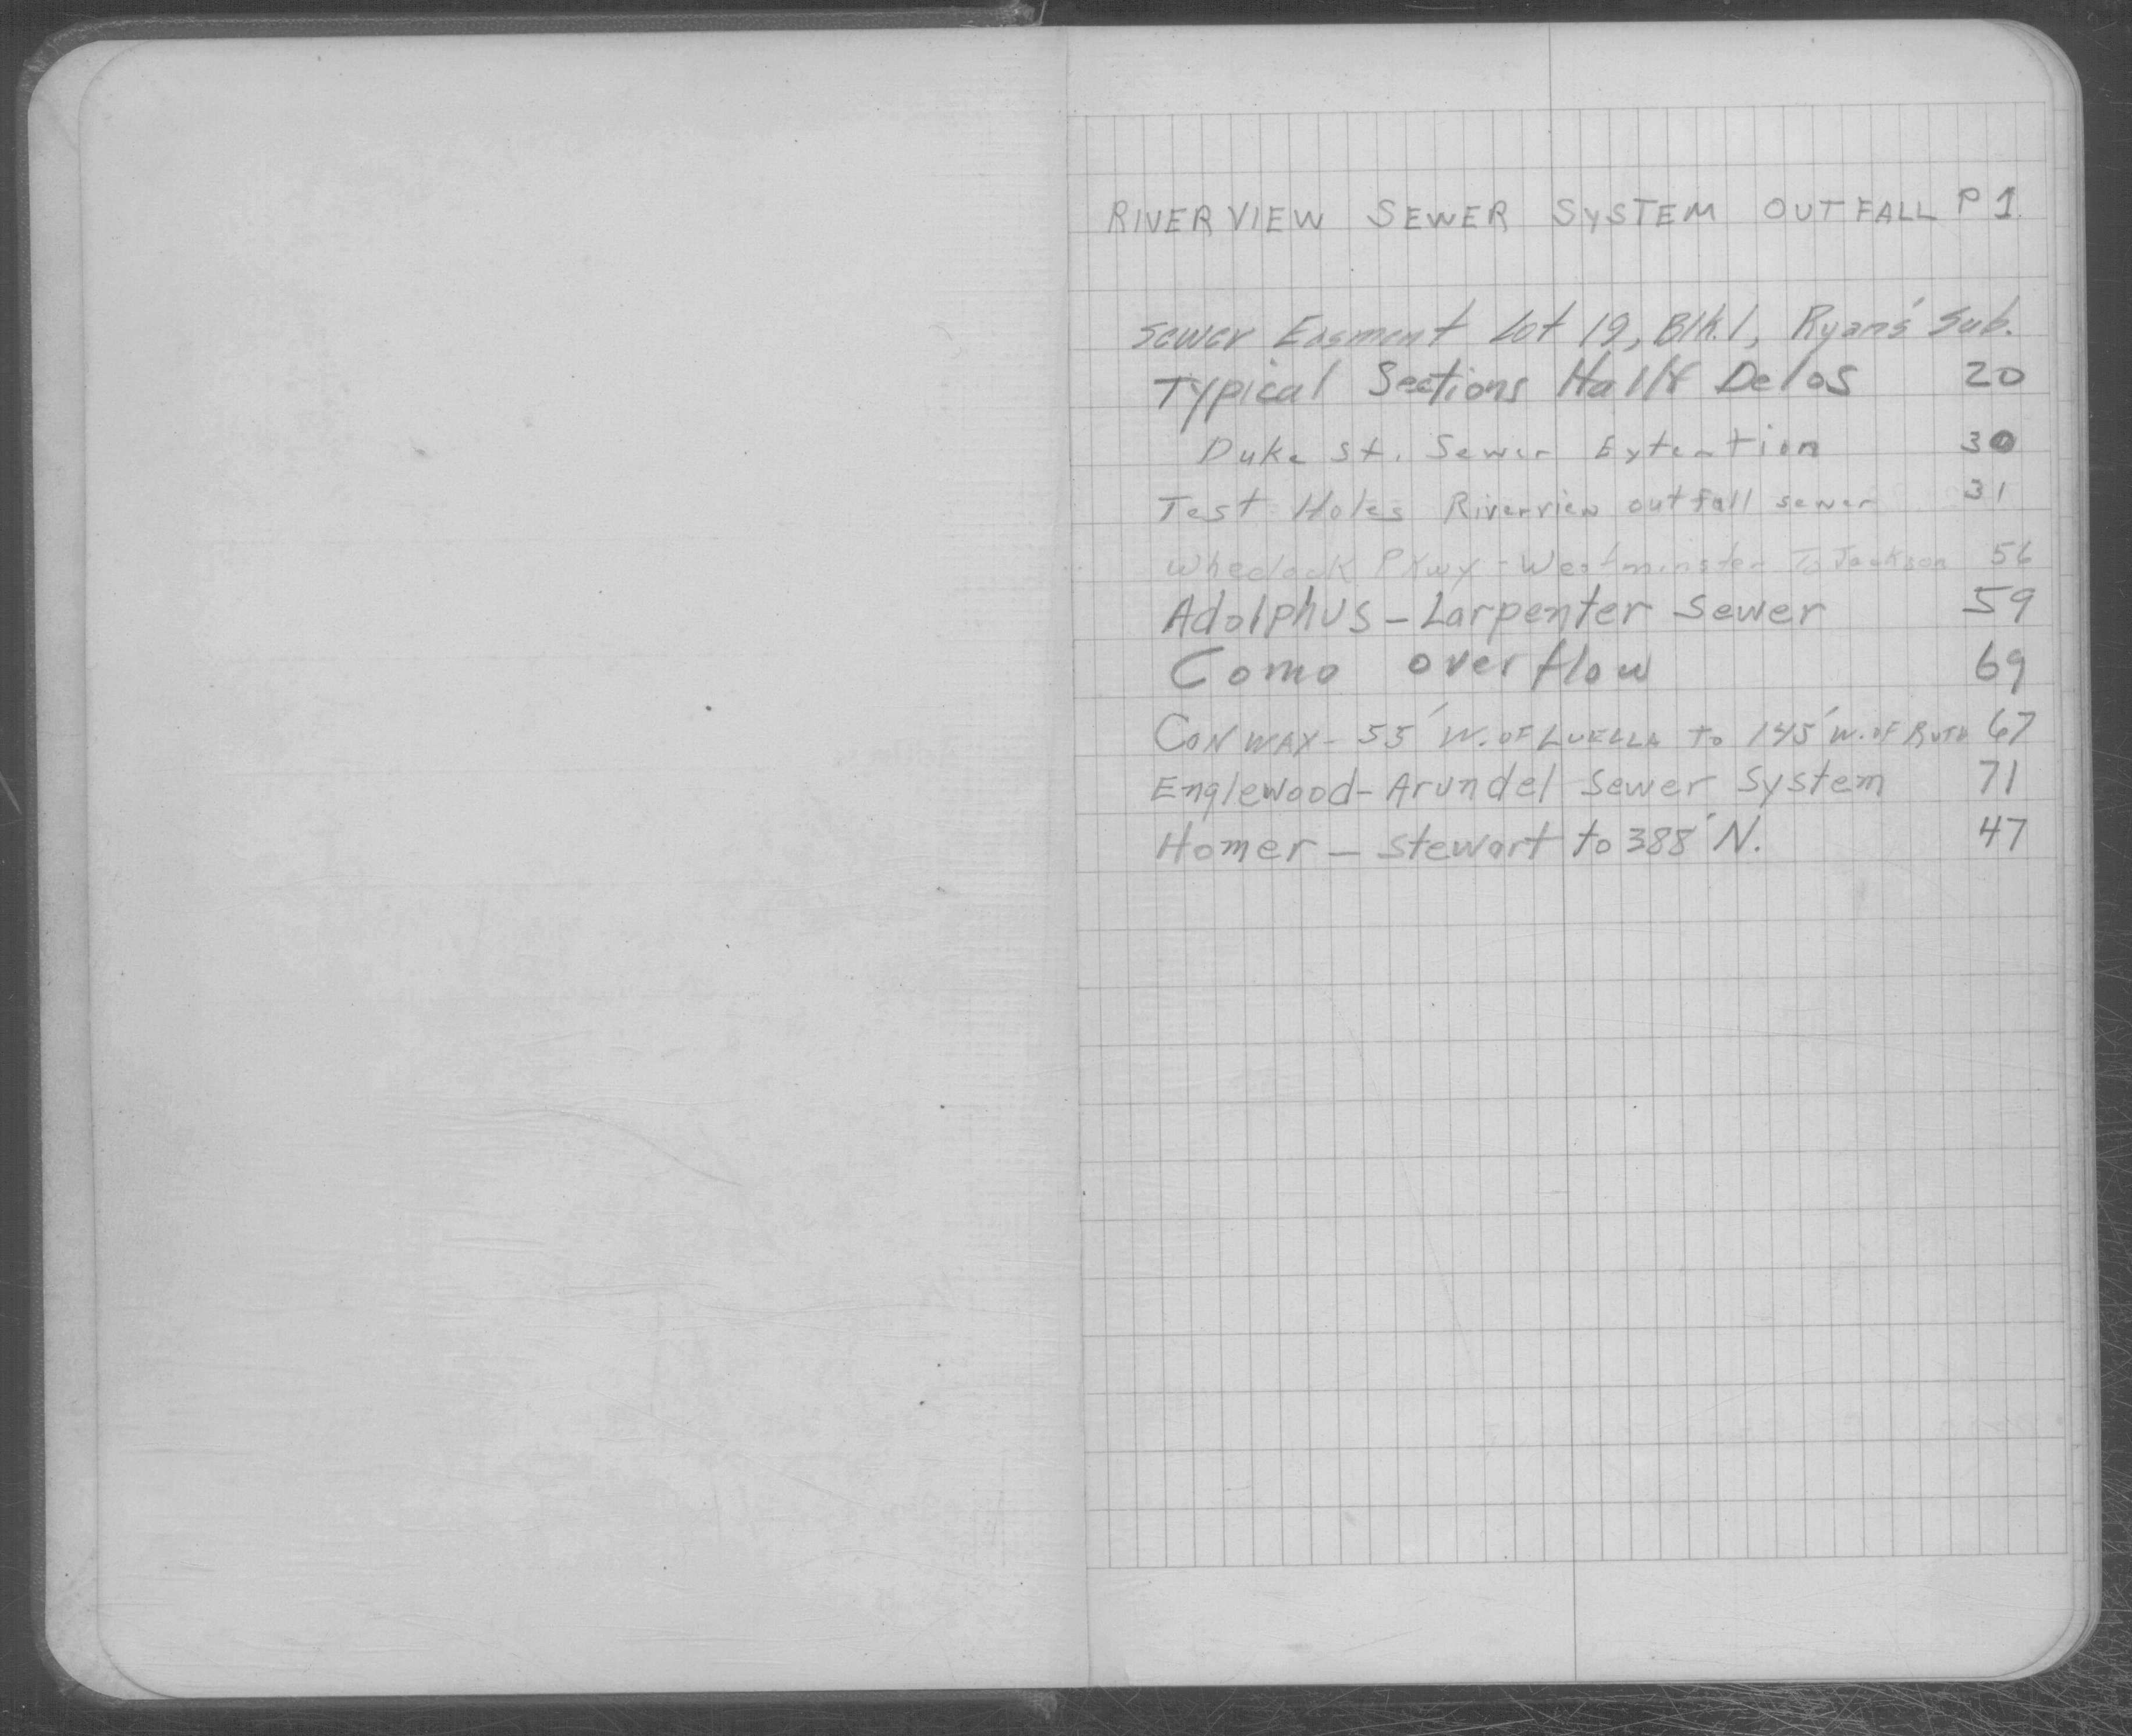 RIVERVIEW SEWER SYSTEM OUTFALL P 1
Sewer Easment Lot 19, Blk.1, Ryan's Sub.
Typical Sections Hall & Delos 20
Duke St. Sewer Extention 30
Test Holes Riverview outfall sewer 31
Wheelock PKwy - Westminster To Jackson 56
Adolphus - Larpenter Sewer 59
Como overflow 69
CONWAY - 55' W. OF LUELLA to 145' W. OF RUTH 67
Englewood - Arundel Sewer System 71
Homer - Stewart to 388' N. 47